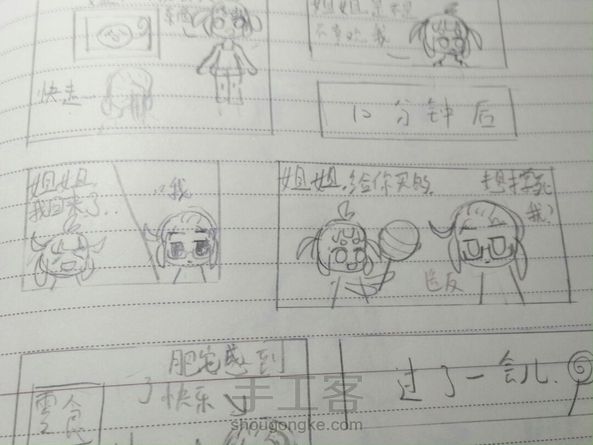 快走
姐姐是不是
不喜欢我
10分钟后
姐姐
我回来了..
我
姐姐.给你买的.
想撑死
我?
肥宅感到
了快乐
零食
过了一会儿.
手工客
shougongke.com